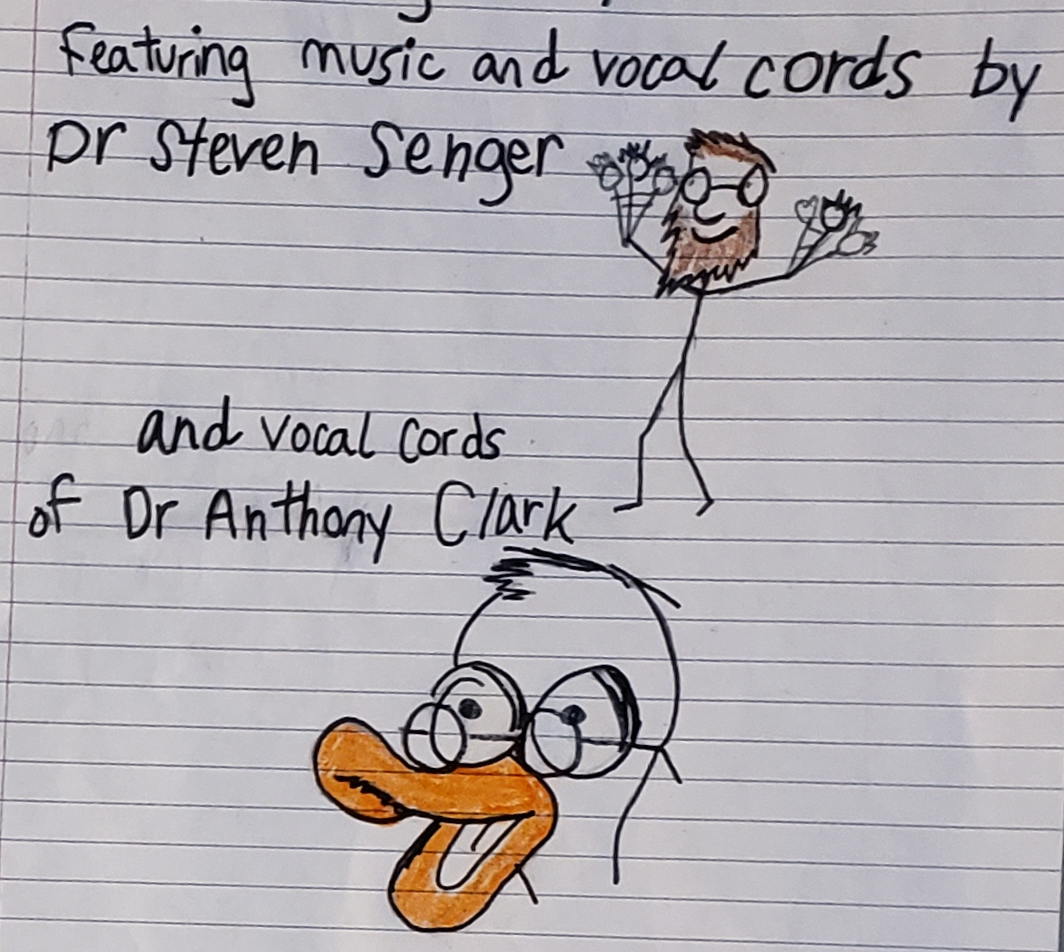 Featuring music and vocal cords by
Dr Steven Senger
and vocal cords
of Dr Anthony Clark